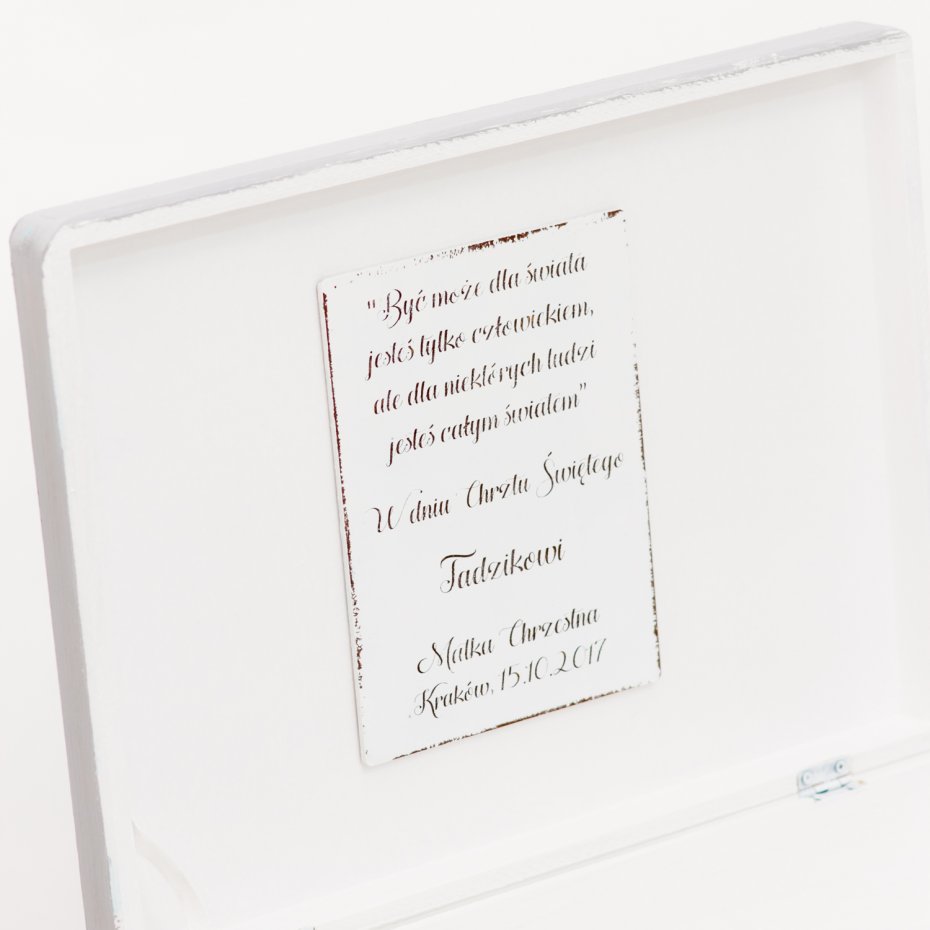 "Być może dla świata
jesteś tylko człowiekiem,
ale dla niektórych ludzi
jesteś całym światem"
W dniu Chrztu Świętego
Tadzikowi
Matka Chrzestna
Kraków, 15.10.2017